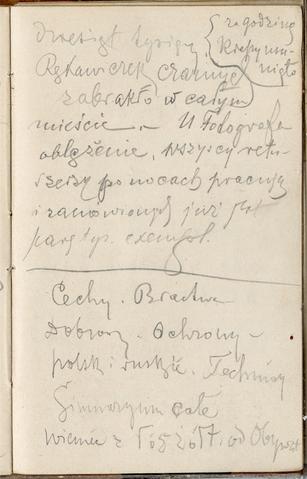 dwieście tysięcy { za godzinę
Rękawiczek czarnych { Krepy uni-
zabrakło w całym
mieście. - U Fotografa
oblężenie, wszyscy retu-
szerzy po nocach pracują
i zamówionych już jest
parę tys. exempl.
Cechy. Bractwa
Dobrocz. Ochrony -
polsk i ruskie. Technicy
Gimnazyum całe
wieniec z róż żółt. od